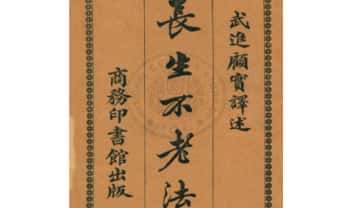 武進顧實譯述
長生不老法
商務印書館出版